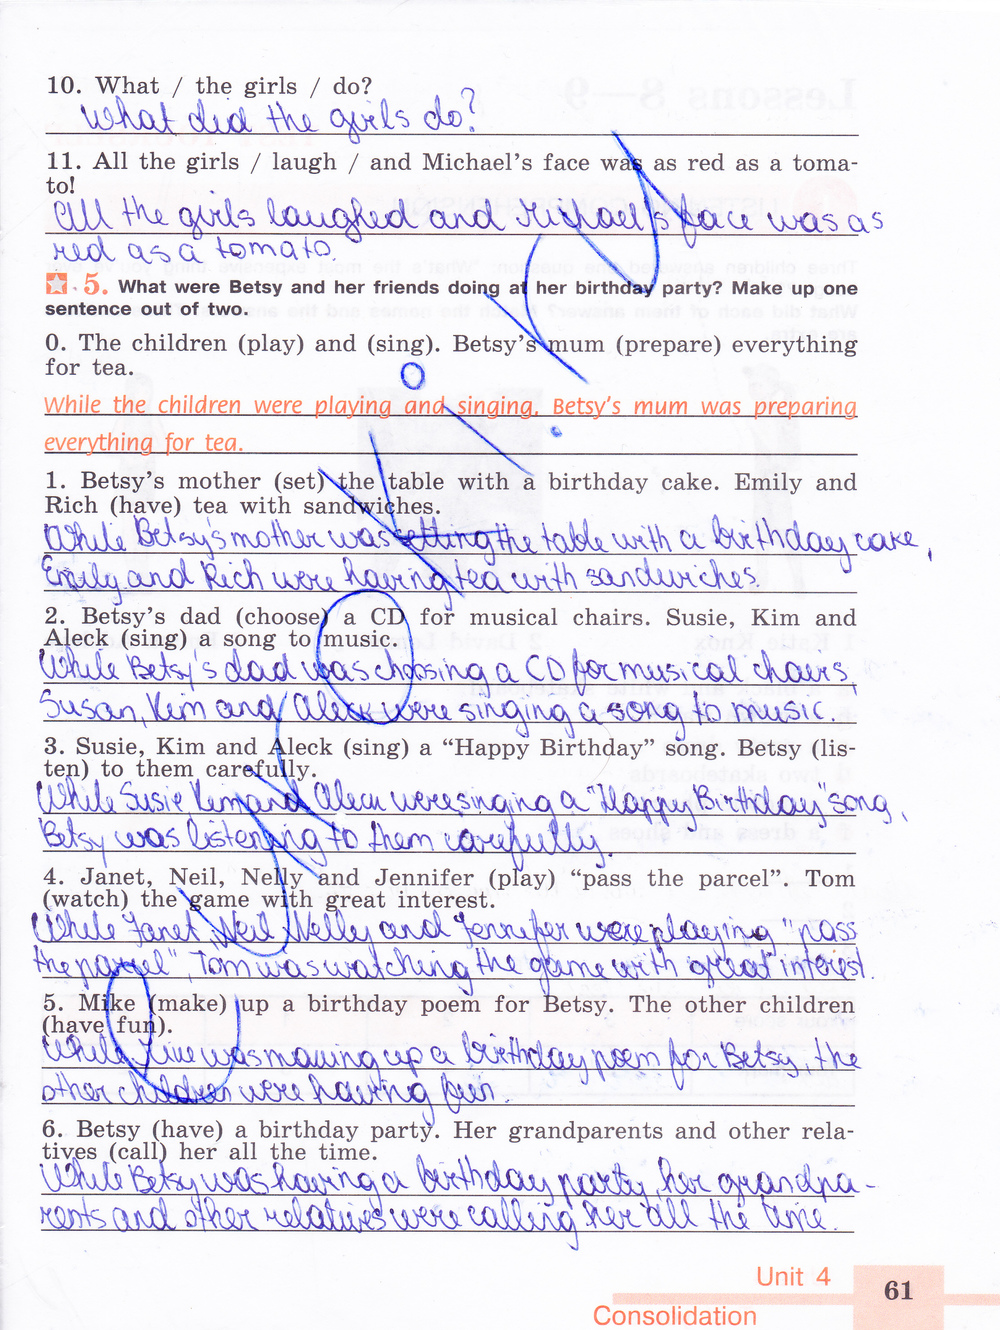 10. What / the girls / do?
What did the girls do?
11. All the girls / laugh / and Michael's face was as red as a toma-
to!
All the girls laughed and Michael's face was as
red as a tomato.
5. What were Betsy and her friends doing at her birthday party? Make up one
sentence out of two.
0. The children (play) and (sing). Betsy's mum (prepare) everything
for tea.
While the children were playing and singing, Betsy's mum was preparing
everything for tea.
1. Betsy's mother (set) the table with a birthday cake. Emily and
Rich (have) tea with sandwiches.
While Betsy's mother was setting the table with a birthday cake,
Emily and Rich were having tea with sandwiches.
2. Betsy's dad (choose) a CD for musical chairs. Susie, Kim and
Aleck (sing) a song to music.
While Betsy's dad was choosing a CD for musical chairs,
Susan, Kim and Aleck were singing a song to music.
3. Susie, Kim and Aleck (sing) a “Happy Birthday” song. Betsy (lis-
ten) to them carefully.
While Susie Kim and Aleck were singing a "Happy Birthday" song,
Betsy was listening to them carefully.
4. Janet, Neil, Nelly and Jennifer (play) “pass the parcel”. Tom
(watch) the game with great interest.
While Janet, Neil, Nelly and Jennifer were playing "pass
the parcel", Tom was watching the game with great interest.
5. Mike (make) up a birthday poem for Betsy. The other children
(have fun).
While Mike was making up a birthday poem for Betsy, the
other children were having fun.
6. Betsy (have) a birthday party. Her grandparents and other rela-
tives (call) her all the time.
While Betsy was having a birthday party, her grandpa-
rents and other relatives were calling her all the time.
Unit 4
61
Consolidation